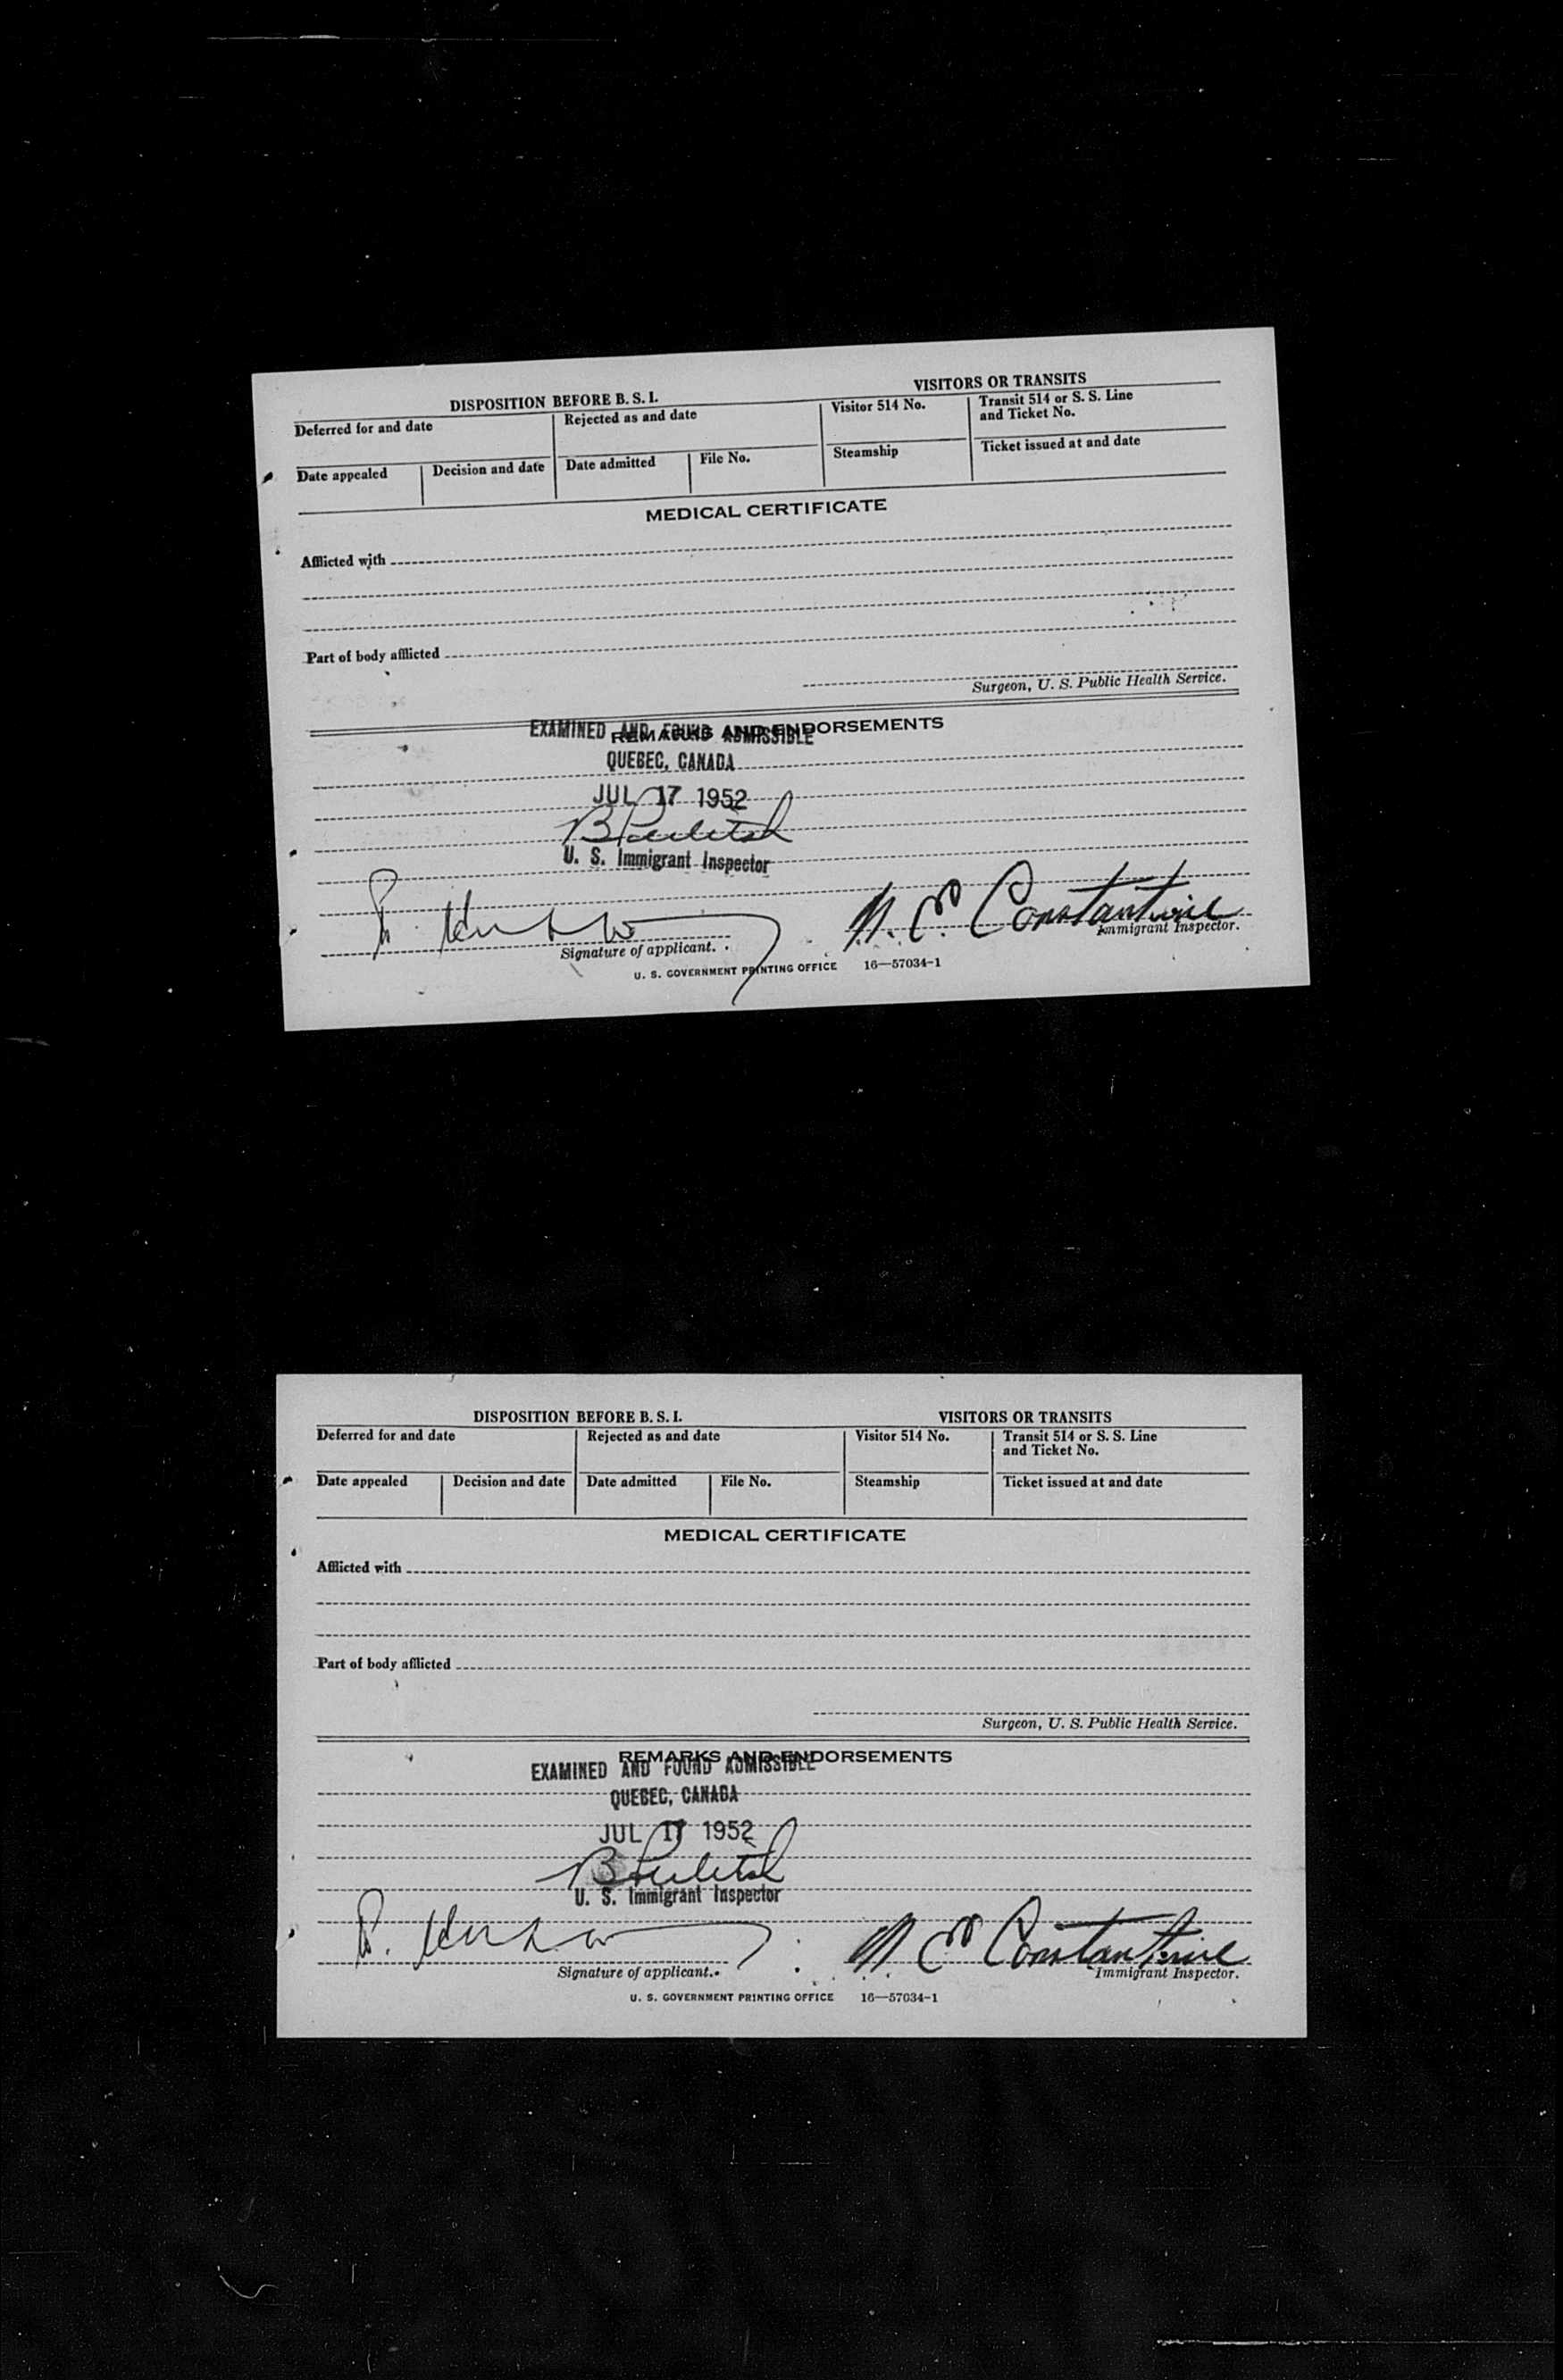 DISPOSITION BEFORE B. S. I.
VISITORS OR TRANSITS
Deferred for and date
Rejected as and date
Visitor 514 No.
Transit 514 or S. S. Line
and Ticket No.
Date appealed
Decision and date
Date admitted
File No.
Steamship
Ticket issued at and date
MEDICAL CERTIFICATE
Afflicted with
Part of body afflicted
Surgeon, U. S. Public Health Service.
REMARKS AND ENDORSEMENTS
EXAMINED AND FOUND ADMISSIBLE
QUEBEC, CANADA
JUL 17 1952
U. S. Immigrant Inspector
N. C. Constantine
Signature of applicant.
Immigrant Inspector.
U. S. GOVERNMENT PRINTING OFFICE 16—57034-1
DISPOSITION BEFORE B. S. I.
VISITORS OR TRANSITS
Deferred for and date
Rejected as and date
Visitor 514 No.
Transit 514 or S. S. Line
and Ticket No.
Date appealed
Decision and date
Date admitted
File No.
Steamship
Ticket issued at and date
MEDICAL CERTIFICATE
Afflicted with
Part of body afflicted
Surgeon, U. S. Public Health Service.
REMARKS AND ENDORSEMENTS
EXAMINED AND FOUND ADMISSIBLE
QUEBEC, CANADA
JUL 17 1952
U. S. Immigrant Inspector
N C Constantine
Signature of applicant.
Immigrant Inspector.
U. S. GOVERNMENT PRINTING OFFICE 16—57034-1